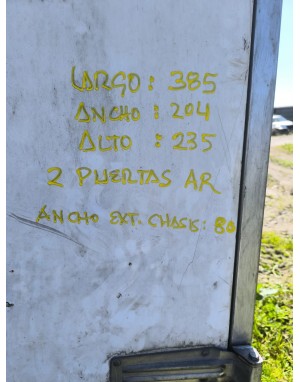 LARGO: 385
ANCHO: 204
ALTO: 235
2 PUERTAS AR
ANCHO EXT. CHASIS: 80